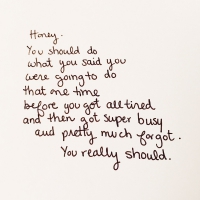 Honey.
You should do
what you said you
were going to do
that one time
before you got all tired
and then got super busy
and pretty much forgot.
You really should.